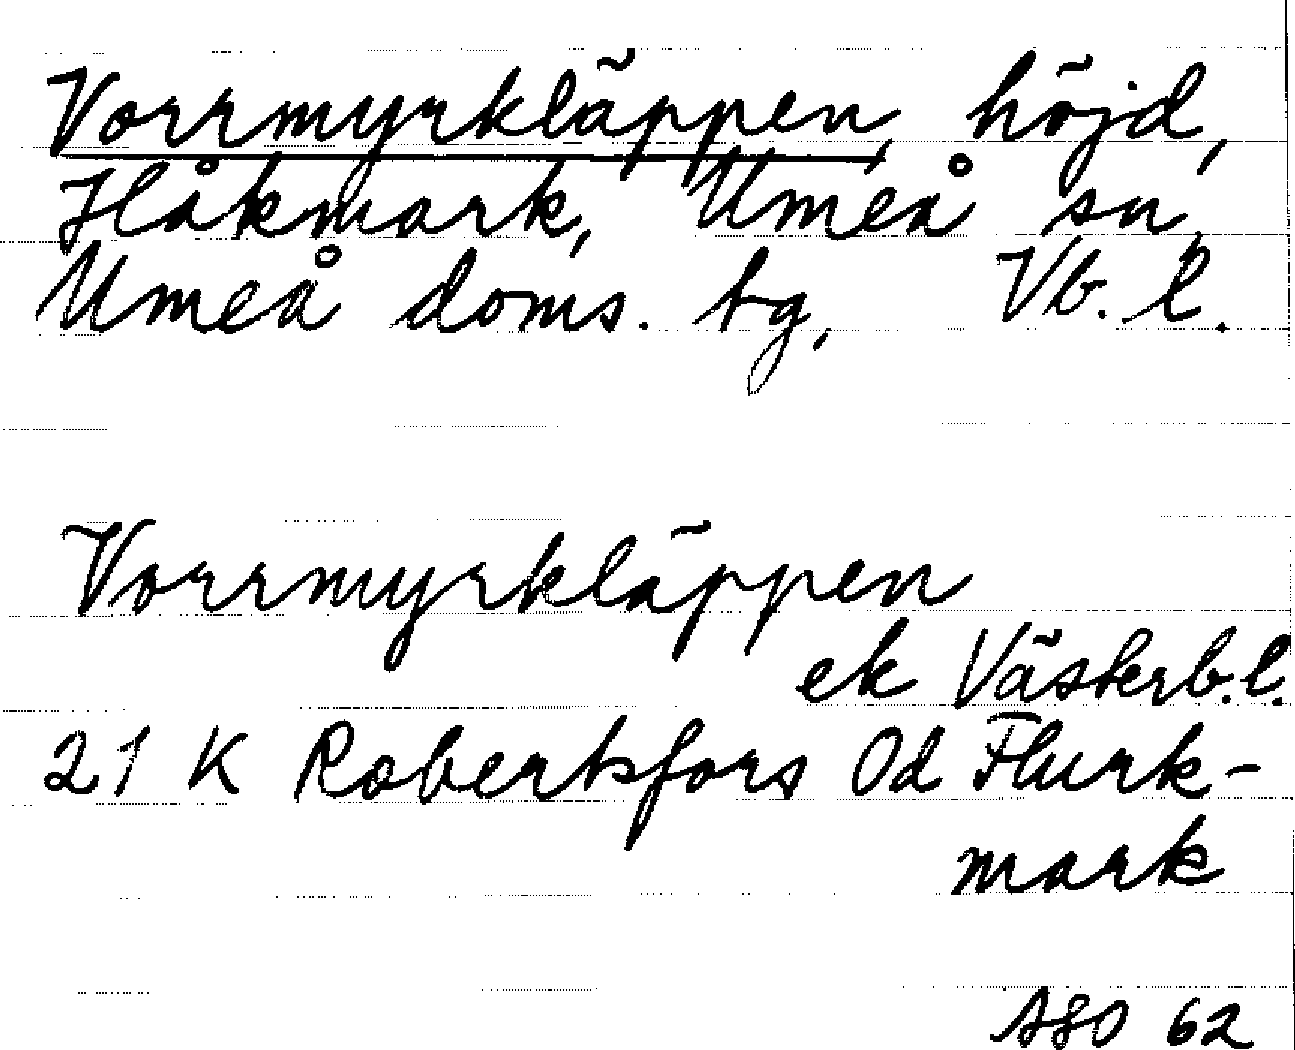 Vorrmyrkläppen, höjd,
Håkmark, Umeå sn,
Umeå doms. tg, Vb. l.
Vorrmyrkläppen
ek Västerb. l.
21 K Robertsfors 0d Flurk-
mark
62